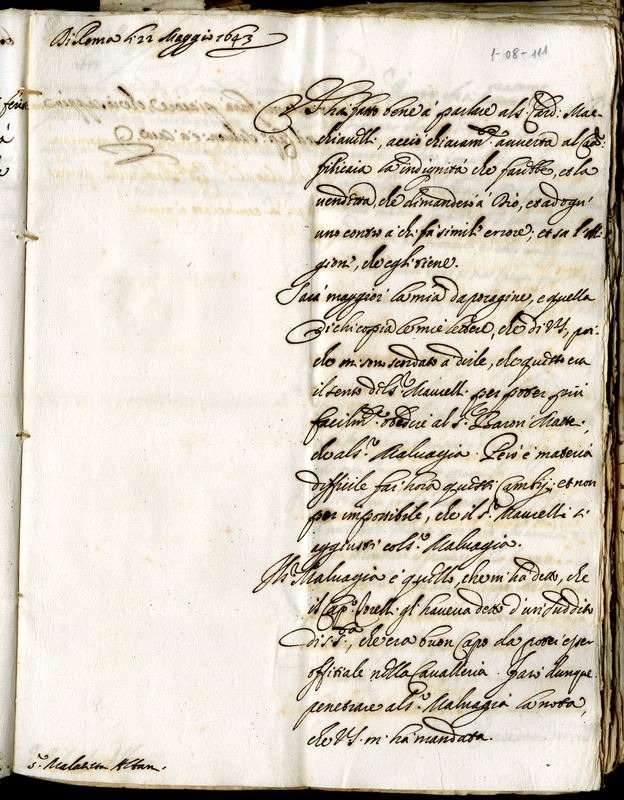 Di Roma li 22 Maggio 1643
1-08-111
S'ha fatto bene à parlare al S.r Card: Mac-
chiavelli, acciò chiaram.te avverta al Cap.
filicaia la indignità che farebbe, et la
vendetta, che dimanderà à Dio, et ad ogni
uno contro à chi fà simili errore; et sa l'
gioni, che egli tiene.
Sarà maggior la mia dapocagine, e quella
di chi copia le mie lettere, che di V.S, per-
che mi son scordato a dirle, che questo era
il senso del S.r Maurelli per poter più
facilm.te obedire al S.r Baron Matte
che al S.r Malvagia. Però è materia
difficile far hora questi cambij, et non
per impossibile, che il S.r Maurelli si
aggiusti col S.r Malvagia.
Il S.r Malvagia è quello, che m'ha detto, che
il Cap.o gli haveva detto d'un suddito
di S. S.tà, che era buon Capo da poter esser
offitiale nella Cavalleria. farò dunque
penetrare al S.r Malvagia la nota,
che V.S. m'ha mandata.
S.r Malatesta Alban.